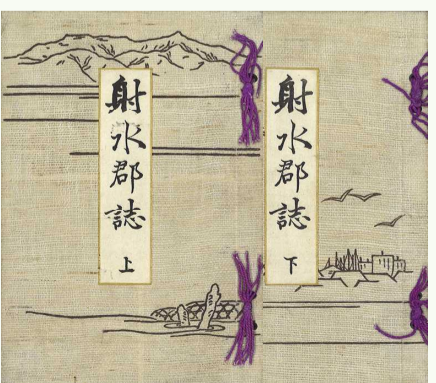 射水郡誌
上
射水郡誌
下